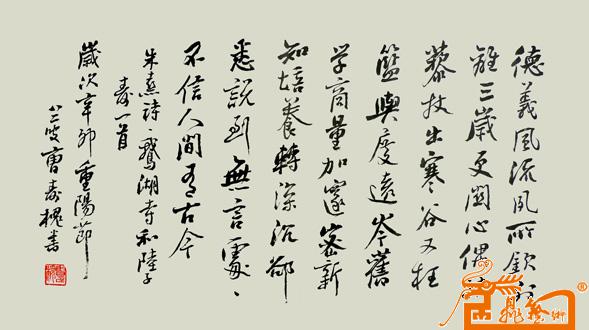 德義風流夙所欽別
離三歲更關心偶
藜杖出寒谷又枉
籃輿度遠岑舊
学商量加邃密新
知培養轉深沉卻
愁說到無言處、
不信人間有古今
朱熹詩、鵝湖寺和陸子
壽一首
歲次辛卯重陽節
叟曹壽槐書